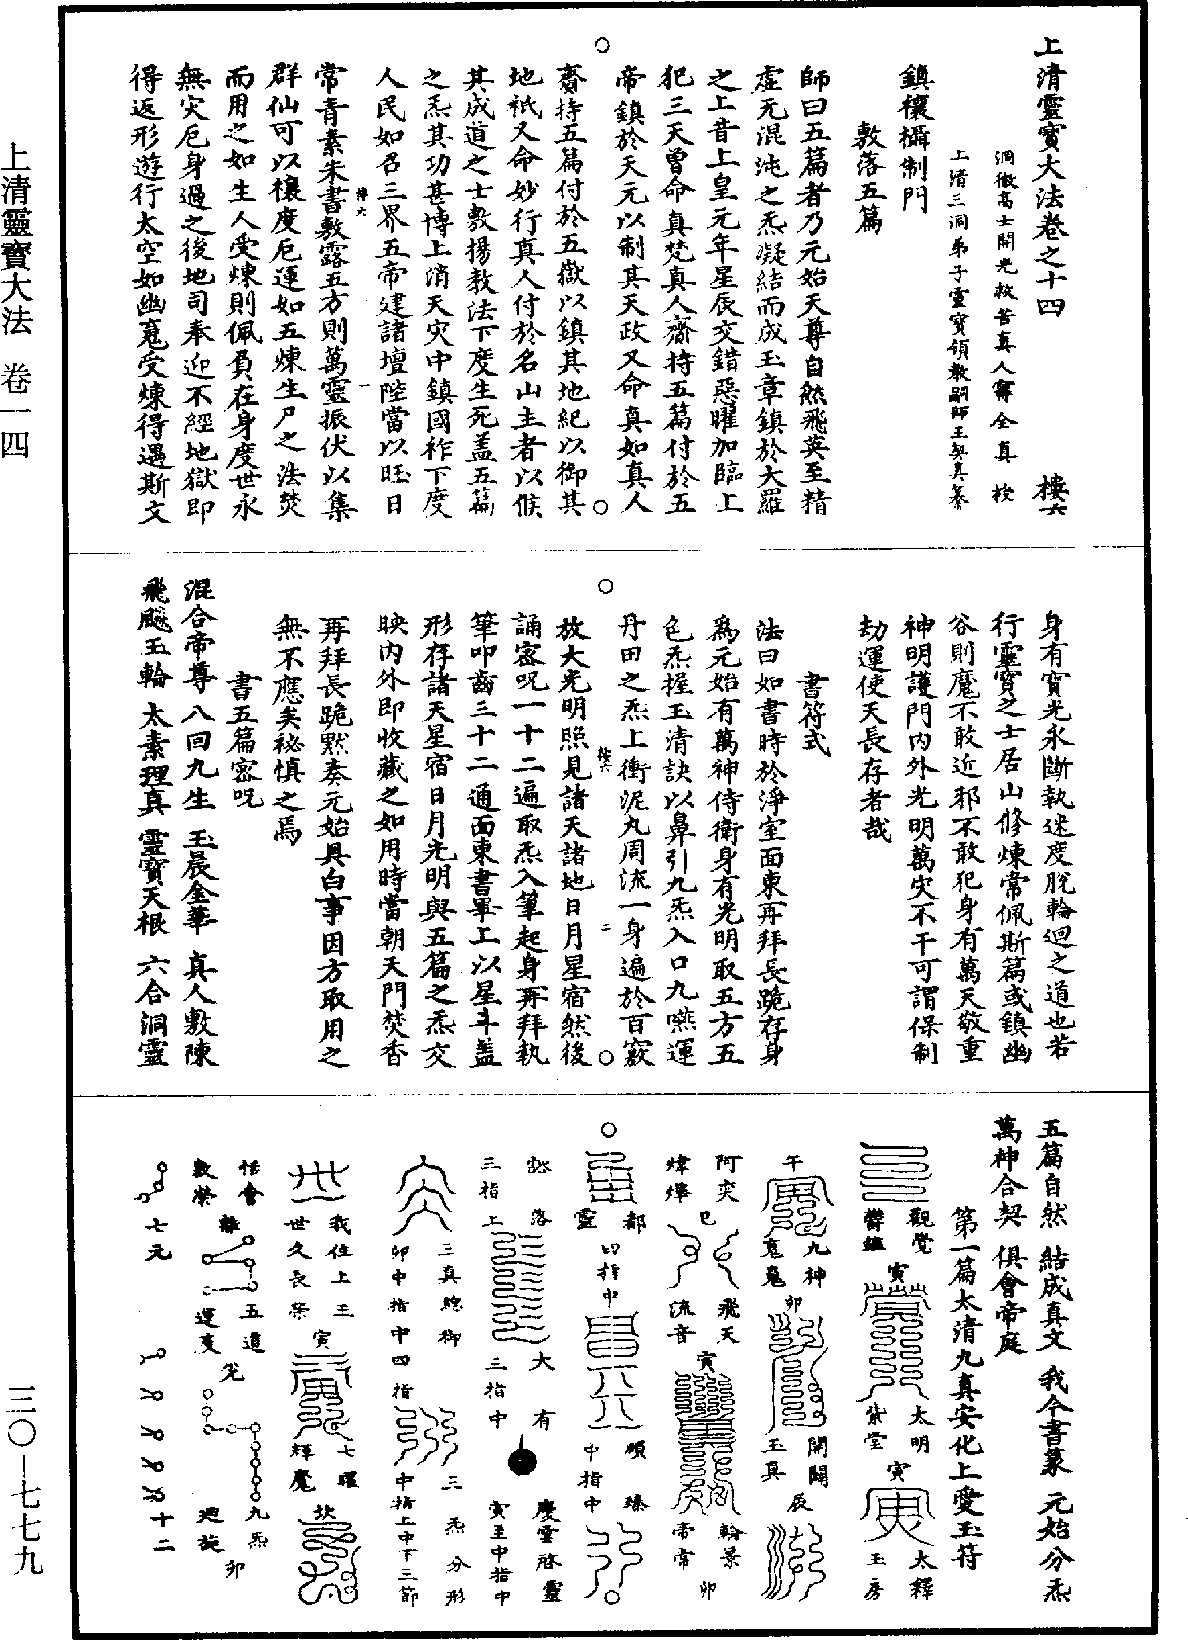 上清靈寶大法 卷一四
三〇—七七九
上清靈寶大法卷之十四 樓六
洞微高士開光救苦真人甯全真 授
上清三洞弟子靈寶領教嗣師王契真纂
鎮禳攝制門
敷落五篇
師曰五篇者乃元始天尊自然飛英至精
虛无混沌之炁凝結而成玉章鎮於大羅
之上昔上皇元年星辰交錯惡曜加臨上
犯三天曾命真梵真人齎持五篇付於五
帝鎮於天元以制其天政又命真如真人
齎持五篇付於五嶽以鎮其地紀以御其
地祇又命妙行真人付於名山主者以候
其成道之士敷揚教法下度生死蓋五篇
之炁其功甚博上消天灾中鎮國祚下度
人民如召三界五帝建諸壇陞當以旺日
樓六 一
常青素朱書敷露五方則萬靈振伏以集
群仙可以禳度厄運如五煉生尸之法焚
而用之如生人受煉則佩負在身度世永
無灾厄身過之後地司奉迎不經地獄即
得返形遊行太空如幽䰟受煉得遇斯文
身有寶光永斷執迷度脫輪迴之道也若
行靈寶之士居山修煉常佩斯篇或鎮幽
谷則魔不敢近邪不敢犯身有萬天敬重
神明護門內外光明萬灾不干可謂保制
劫運使天長存者哉
書符式
法曰如書時於淨室面東再拜長跪存身
為元始有萬神侍衛身有光明取五方五
色炁握玉清訣以鼻引九炁入口九嚥運
丹田之炁上衝泥丸周流一身遍於百竅
樓六 二
放大光明照見諸天諸地日月星宿然後
誦密呪一十二遍取炁入筆起身再拜執
筆叩齒三十二通面東書畢上以星斗蓋
形存諸天星宿日月光明與五篇之炁交
映內外即收藏之如用時當朝天門焚香
再拜長跪默奏元始具白事因方取用之
無不應矣祕慎之焉
書五篇密呪
混合帝尊 八回九生 玉晨金華 真人敷陳
飛飈玉輪 太素理真 靈寶天根 六合洞靈
五篇自然 結成真文 我今書篆 元始分炁
萬神合契 俱會帝庭
第一篇太清九真安化上愛玉符
觀覺
欝鑑
寅
太明
紫堂
寅
太釋
玉房
午
九神
䰟䰟
卯
開闢
玉真
辰
阿奕
煒燁
巳
飛天
流音
寅
翰景
常帝
卯
都
靈
四指中
順
臻
中指中
豁
落
三指上
大
有
三指中
慶雲啓靈
寅至中指中
三真總御
卯中指中四指
三炁分形
中指上中下三節
我住上三
世久長榮
寅
七曜
輝魔
坎
恬會
敷榮
離
五道
運度
兌
九炁
迴旋
卯
七元
十二